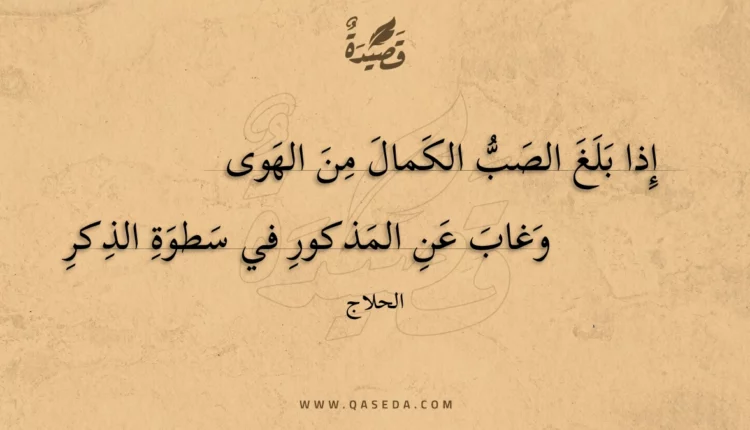 قَصِيدَةٌ
إِذا بَلَغَ الصَبُّ الكَمالَ مِنَ الهَوى
وَغابَ عَنِ المَذكورِ في سَطوَةِ الذِكرِ
الحلاج
WWW.QASEDA.COM